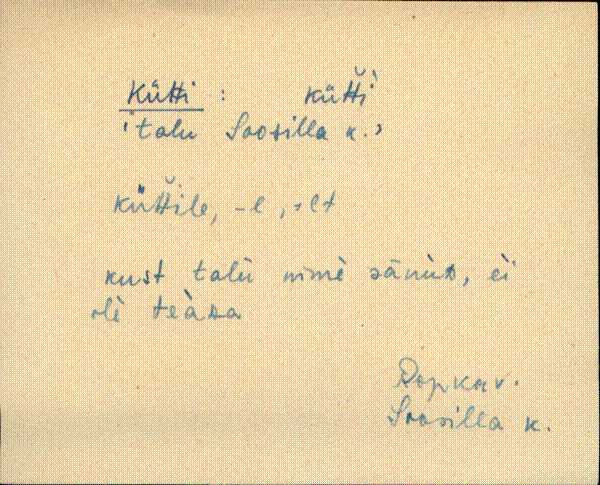 Kütti : kütˇtì
'talu Soosilla k.'
kütˇtile, -l, -lt
kust talù nimè sānùD, ei
olè teàDa
Ropkav.
Soosilla k.